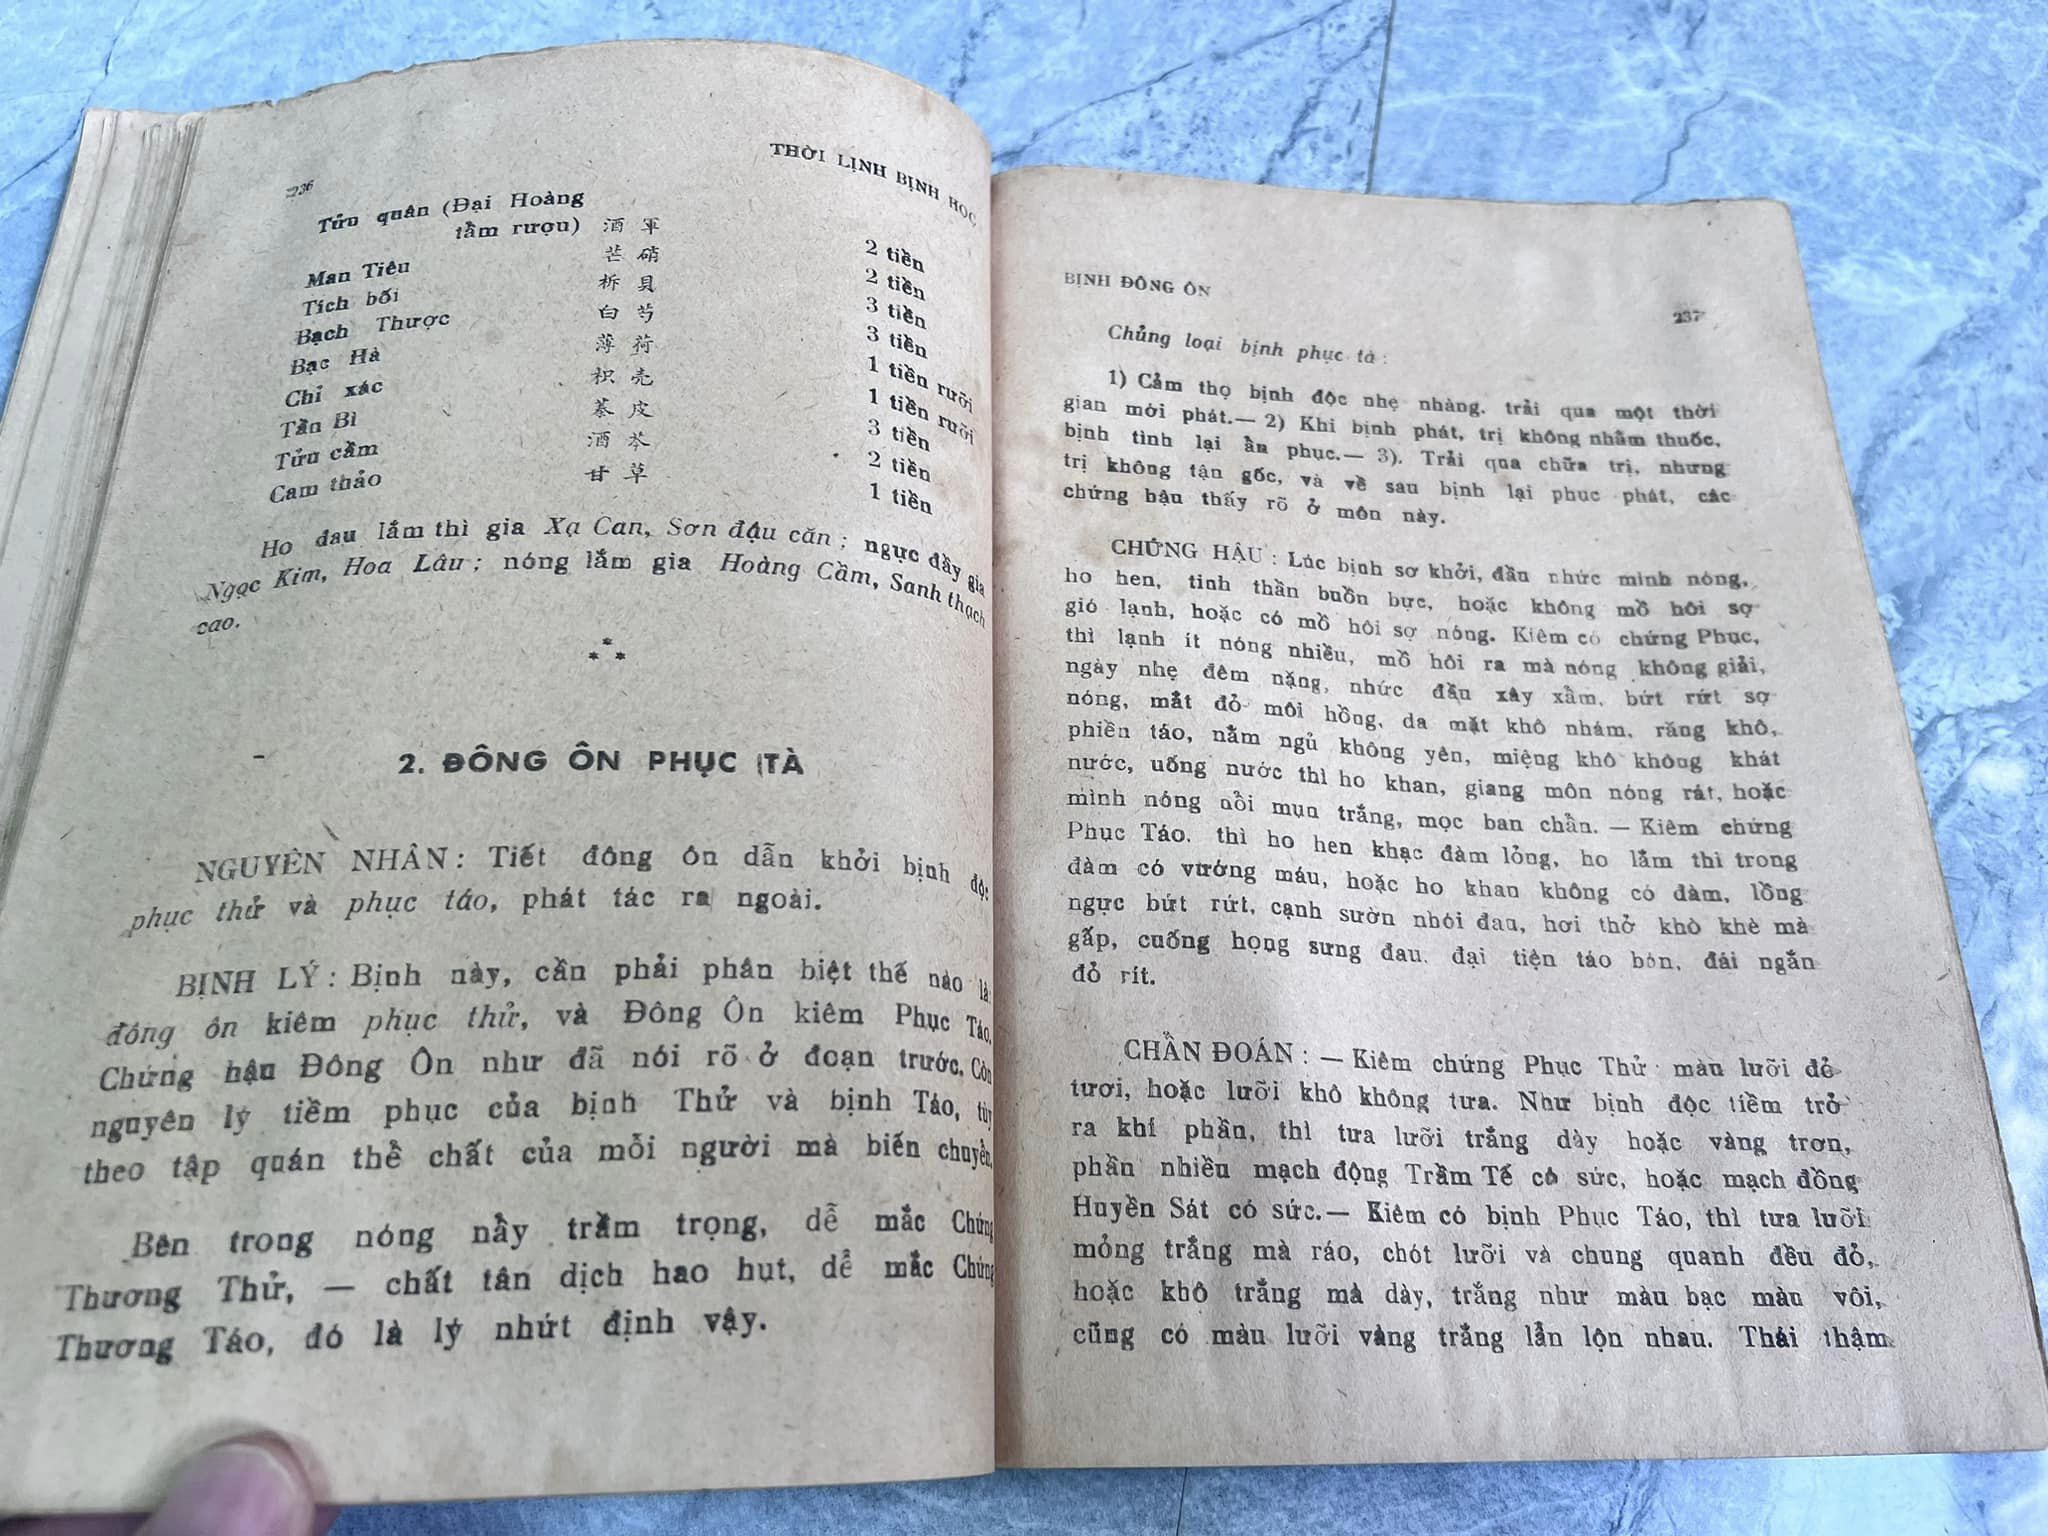 236
THỜI LỊNH BỊNH HỌC
Tửu quân (Đại Hoàng
tẩm rượu) 酒軍 2 tiền
Man Tiêu 芒硝 2 tiền
Tích bối 柝貝 3 tiền
Bạch Thược 白芍 3 tiền
Bạc Hà 薄荷 1 tiền rưỡi
Chỉ xác 枳壳 1 tiền rưỡi
Tần Bì 蓁皮 3 tiền
Tửu cầm 酒芩 2 tiền
Cam thảo 甘草 1 tiền
Ho đau lắm thì gia Xạ Can, Sơn đậu căn ; ngực đầy gia
Ngọc Kim, Hoa Lâu ; nóng lắm gia Hoàng Cầm, Sanh thạch
cao.
* * *
2. ĐÔNG ÔN PHỤC TÀ
NGUYÊN NHÂN : Tiết đông ôn dẫn khởi bịnh độc
phục thử và phục táo, phát tác ra ngoài.
BỊNH LÝ : Bịnh này, cần phải phân biệt thế nào là
đông ôn kiêm phục thử, và Đông Ôn kiêm Phục Táo.
Chứng hậu Đông Ôn như đã nói rõ ở đoạn trước. Còn
nguyên lý tiềm phục của bịnh Thử và bịnh Táo, tùy
theo tập quán thể chất của mỗi người mà biến chuyển.
Bên trong nóng nầy trầm trọng, dễ mắc Chứng
Thương Thử, — chất tân dịch hao hụt, dễ mắc Chứng
Thương Táo, đó là lý nhứt định vậy.
BỊNH ĐÔNG ÔN
237
Chủng loại bịnh phục tà :
1) Cảm thọ bịnh độc nhẹ nhàng. trải qua một thời
gian mới phát.— 2) Khi bịnh phát, trị không nhằm thuốc,
bịnh tình lại ẩn phục.— 3). Trải qua chữa trị, nhưng
trị không tận gốc, và về sau bịnh lại phục phát, các
chứng hậu thấy rõ ở môn này.
CHỨNG HẬU : Lúc bịnh sơ khởi, đầu nhức mình nóng,
ho hen, tinh thần buồn bực, hoặc không mồ hôi sợ
gió lạnh, hoặc có mồ hôi sợ nóng. Kiêm có chứng Phục,
thì lạnh ít nóng nhiều, mồ hôi ra mà nóng không giải,
ngày nhẹ đêm nặng, nhức đầu xây xẩm, bứt rứt sợ
nóng, mắt đỏ môi hồng, da mặt khô nhám, răng khô,
phiền táo, nằm ngủ không yên, miệng khô không khát
nước, uống nước thì ho khan, giang môn nóng rát, hoặc
mình nóng nổi mụn trắng, mọc ban chẩn. — Kiêm chứng
Phục Táo. thì ho hen khạc đàm lỏng, ho lắm thì trong
đàm có vướng máu, hoặc ho khan không có đàm, lồng
ngực bứt rứt, cạnh sườn nhói đau, hơi thở khò khè mà
gấp, cuống họng sưng đau, đại tiện táo bón, đái ngắn
đỏ rít.
CHẨN ĐOÁN : — Kiêm chứng Phục Thử màu lưỡi đỏ
tươi, hoặc lưỡi khô không tưa. Như bịnh độc tiềm trở
ra khí phần, thì tưa lưỡi trắng dày hoặc vàng trơn,
phần nhiều mạch động Trầm Tế có sức, hoặc mạch đồng
Huyền Sát có sức.— Kiêm có bịnh Phục Táo, thì tưa lưỡi
mỏng trắng mà ráo, chót lưỡi và chung quanh đều đỏ,
hoặc khô trắng mà dày, trắng như màu bạc màu vôi,
cũng có màu lưỡi vàng trắng lẫn lộn nhau. Thái thậm